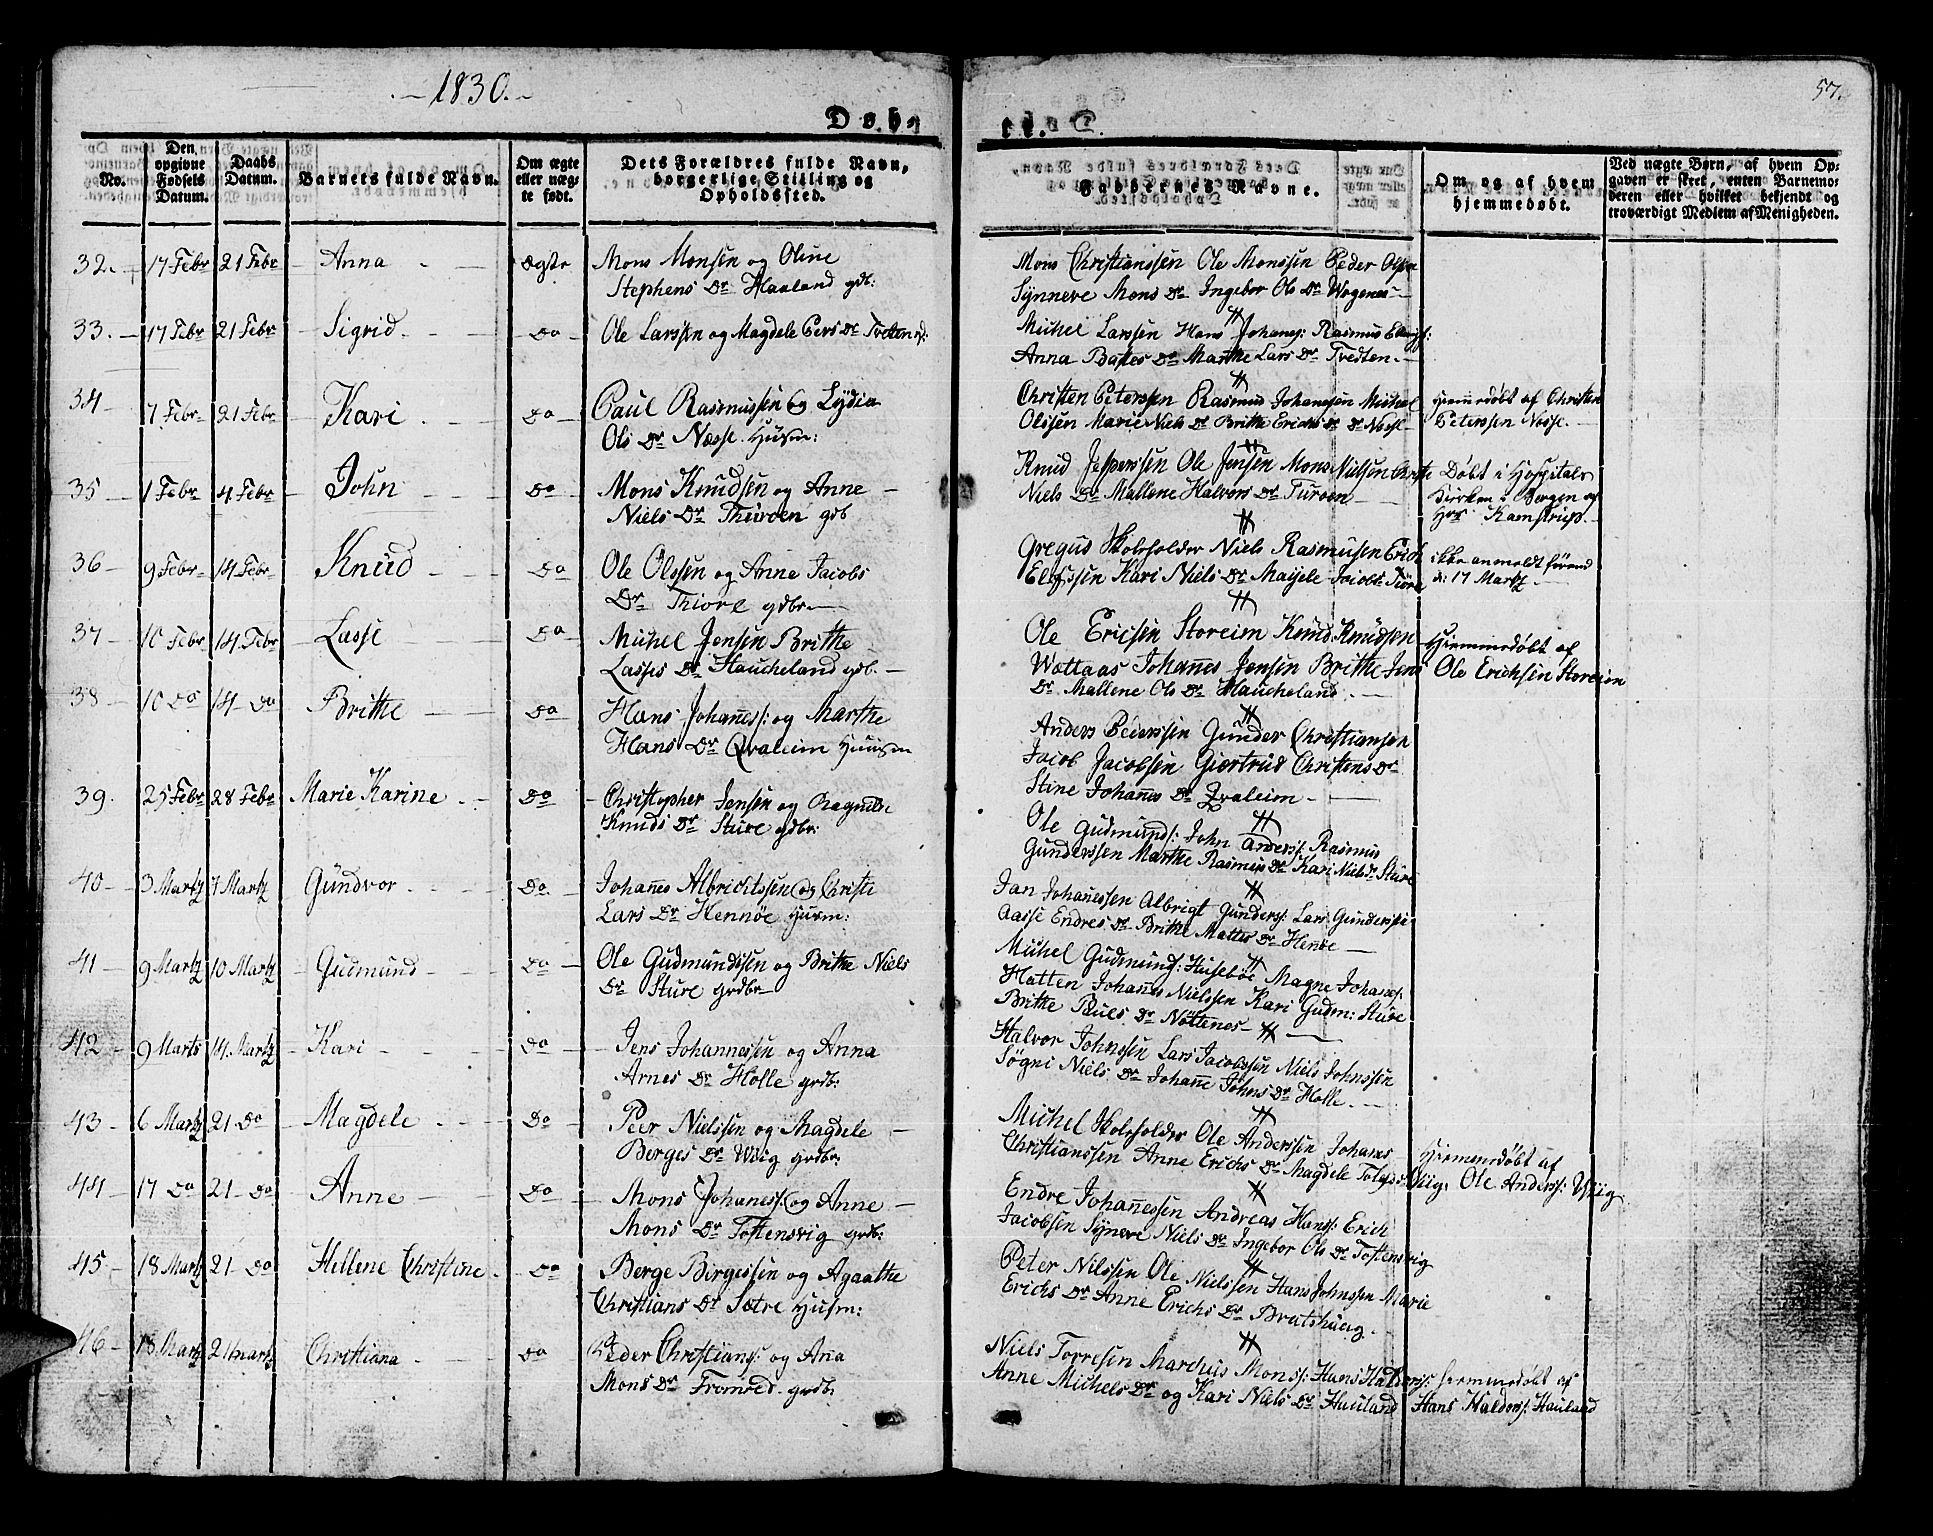 1830.
Døb-
te.
57.
No.
Den opgivne Fødsels Datum.
Daabs Datum.
Barnets fulde Navn.
Om ægte eller uægte født.
Dets Forældres fulde Navn, borgerlige Stilling og Opholdssted.
Faddernes Navne.
Om og af hvem hjemmedøbt.
Ved uægte Børn, af hvem Opgaven er skeet, enten Barnemoderen eller hvilket bekjendt og troværdigt Medlem af Menigheden.
32. 17 Febr 21 Febr Anna ægte Mons Monsen og Oline
Stephens Dr Haaland gdb:
Mons Christianssen Ole Monssen Peder
Synneve Mons Dr Ingebor Ols Dr Wogenes
33. 17 Febr 21 Febr Sigrid Do Ole Larssen og Magdele Pers Dr
Michel Larssen Hans Johans: Rasmus
Anna Dr Marthe Lars Dr Tvedten
34 7 Febr 21 Febr Kari Do Paul Rasmussen og Lydia
Ols Dr Næsse Husm:
Christen Peterssen Rasmus Johanssen Michel
Olssen Marie Niels Dr Britthe Erichs Dr
Hiemmedøbt af Christen
Peterssen Nesse
35 1 Febr 4 Febr John Do Mons Knudsen og Anne
Niels Dr Thuroen gdb
Knud Jesperssen Ole Jensen Mons Nielsen
Niels Dr Mallene Halvors Dr Turoen
Døbt i Hospitals
Kirken i Bergen af
Hr Kamstrup
36 9 Febr 14 Febr Knud Do Ole Olssen og Anne Jacobs
Dr Thiore gdbr
Gregus Skoleholder Niels Rasmusen Erich
Kari Niels Dr Jacobs
ikke anmeldt førend
d: 17 Martz
37 10 Febr 14 Febr Lasse Do Michel Jensen Britthe
Lasses Dr Haucheland gdb.
Ole Ericsen Storeim Knud Knudsen
Wottaas Johannes Jensen Britthe Jens
Dr Mallene Ols Dr Haucheland
Hiemmedøbt af
Ole Erichsen Storeim
38 10 Do 14 Do Britthe Do Hans Johaness: og Marthe
Hans Dr Qvaleim Huusm
Anders Pederssen Gunder Christiansen
Jacob Jacobsen Giertrud Christens Dr
Stine Johanes Dr Qvaleim
39. 25 Febr 28 Febr Marie Karine Do Christopher Jensen og Ragnilde
Knuds Dr Sture gdbr:
Ole Gudmunds: John Anders: Rasmus
Gunderssen Marthe Rasmus Dr Kari Niels Dr Sture
40 3 Martz 7 Martz Gundvor Do Johanes Albrichtssen og Christi
Lars Dr Hennøe Husm:
Jan Johanessen Albrigt Gunders: Lars
Aasse Endres Dr Britthe Dr Henøe
41 9 Martz 10 Martz Gudmund Do Ole Gudmundssen og Britthe Niels
Dr Sture grdbr
Michel Gudmunds: Husebøe Magne Johans:
Hatten Johanes Nielssen Kari Gudm: Sture
Britthe Dr Nøttenes
42 9 Marts 14 Martz Kari Do Jens Johannessen og Anna
Arnes Dr Holle grdb:
Halvor Johnssen Lars Jacobssen Niels Johnssen
Søgni Niels Dr Johane Johns Dr Holle
43 6 Martz 21 Do Magdele Do Peer Nielssen og Magdele
Berges Dr Wiig grdbr:
Michel Skoleholder Ole Anderssen Johans
Christianssen Anne Erichs Dr Magdele
Hiemmedøbt af
Ole Anders: Wiig
44 17 Do 21 Do Anne Do Mons Johaness: og Anne
Mons Dr Toftensvig grdb:
Endre Johanessen Andreas Hans: Erich
Jacobsen Synneve Niels Dr Ingebor Ols Dr Toftensvig
45 18 Martz 21 Do Hellene Christine Do Berge Birgessen og Agaathe
Christians Dr Sætre Husm:
Peter Nilssen Ole Nielssen Hans Johnssen Marie
Erichs Dr Anne Erichs Dr
46 18 Martz 21 martz Christiana Do Peder Christians: og Ana
Mons Dr Fromred grdb:
Niels Torresen Marchus Mons: Hans
Anne Michels Dr og Kari Niels Dr Hauland
hiemmedøbt af
Hans Halders: Hauland